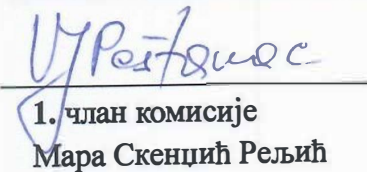 1. члан комисије
Мара Скенџић Рељић